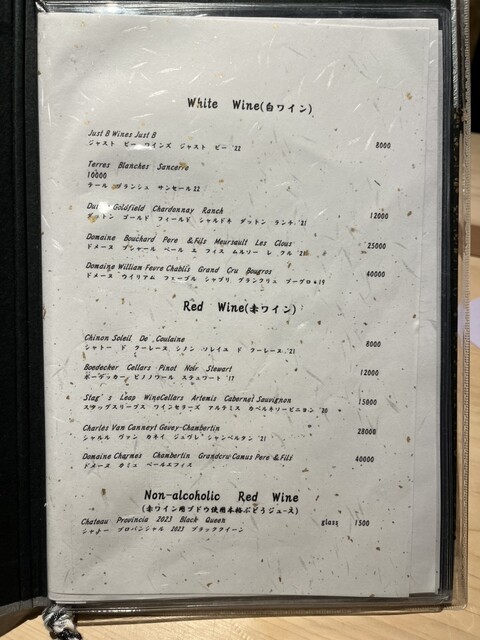 White Wine(白ワイン)
Just B Wines Just B
ジャスト ビー ワインズ ジャスト ビー '22 8000
Terres Blanches Sancerre
10000
テール ブランシュ サンセール 22
Goldfield Chardonnay Ranch
ダットン ゴールド フィールド シャルドネ ダットン ランチ '21 12000
Domaine Bouchard Pere &Fils Meursault Les Clous
ドメーヌ ブシャール ペール エ フィス ムルソー レ クル '21 25000
Domaine William Fevre Chablis Grand Cru Bougros
ドメーヌ ウイリアム フェーブル シャブリ グランクリュ ブーグロ '19 40000
Red Wine(赤ワイン)
Chinon Soleil De Coulaine
シャトー ド クーレーヌ シノン ソレイユ ド クーレーヌ '21 8000
Boedecker Cellars Pinot Noir Stewart
ボーデッカー ピノノワール スチュワート '17 12000
Stag's Leap WineCellars Artemis Cabernet Sauvignon
スタッグスリープス ワインセラーズ アルテミス カベルネソービニヨン '20 15000
Charles Van Canneyt Gevey-Chambertin
シャルル ヴァン カネイ ジュヴレ シャンベルタン '21 28000
Domaine Charmes Chambertin Grandcru Camus Pere & Fils
ドメーヌ カミュ ペールエフィス 40000
Non-alcoholic Red Wine
(赤ワイン用ブドウ使用本格ぶどうジュース)
Chateau Provincia 2023 Black Queen glass 1500
シャトー プロバンシャル 2023 ブラッククイーン